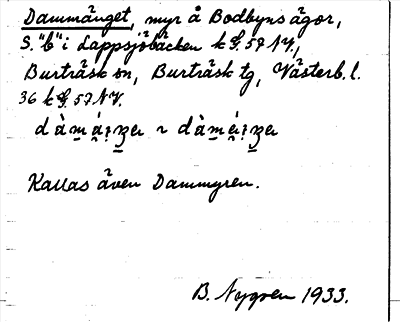 Dammänget, myr å Bodbyns ägor,
S. "b" i Lappsjöbäcken k S. 57 NV,
Burträsk sn, Burträsk tg, Västerb. l.
36 k S. 57 NV.
Kallas även Dammyren.
B. Nygren 1933.